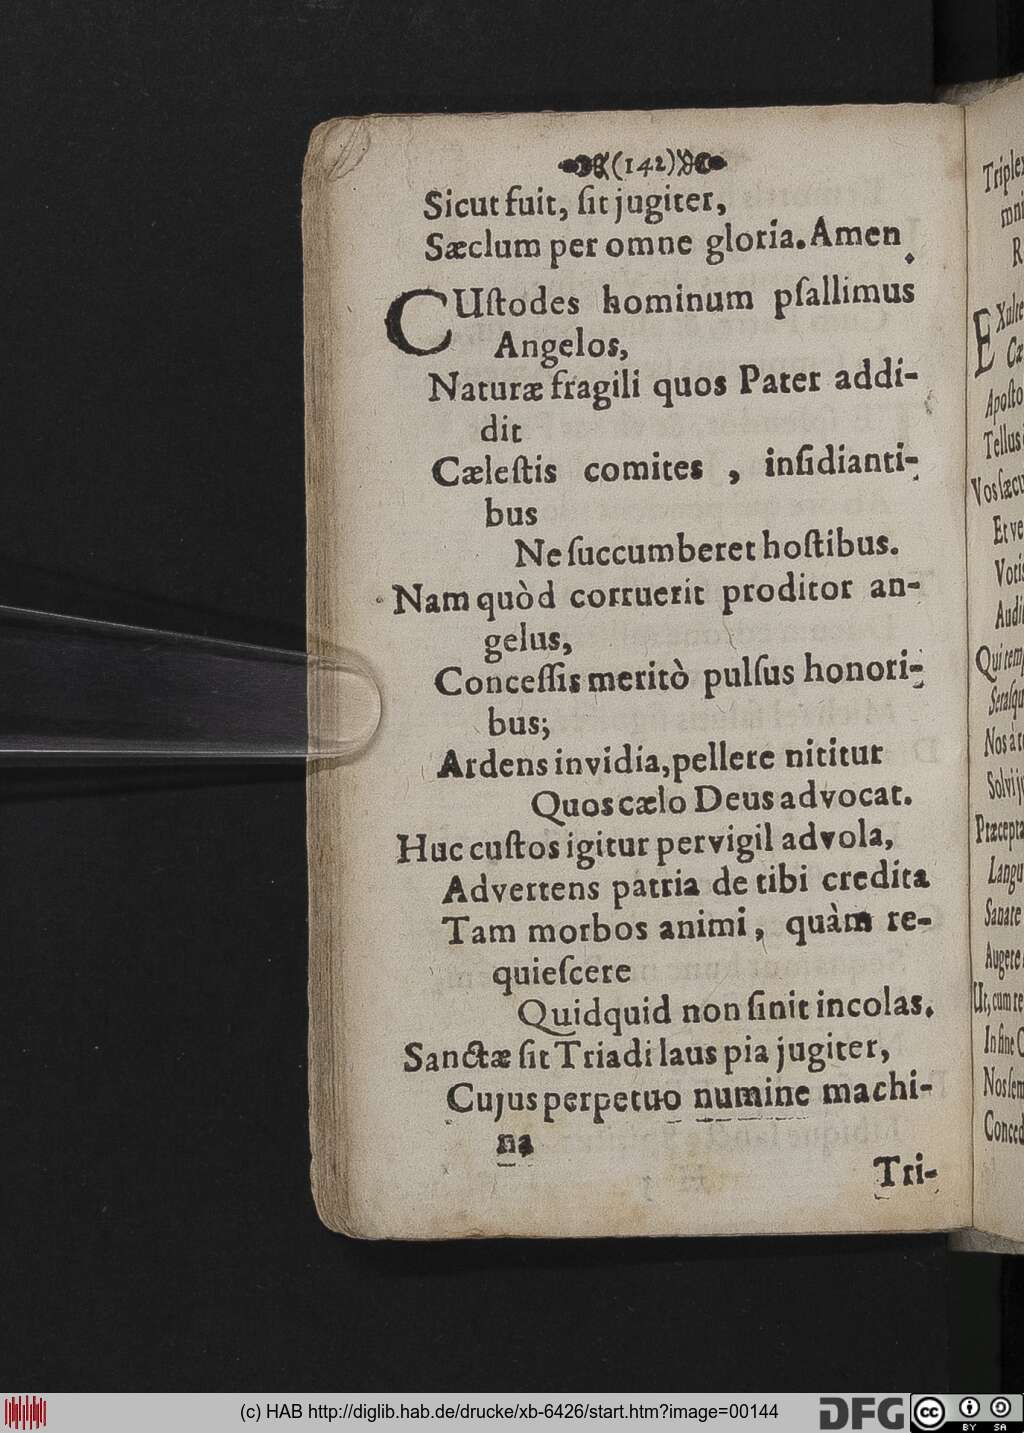 (142)
Sicut fuit, ſit jugiter,
Sæclum per omne gloria. Amen.
CUſtodes hominum pſallimus
Angelos,
Naturæ fragili quos Pater addi-
dit
Cæleſtis comites, inſidianti-
bus
Ne ſuccumberet hoſtibus.
Nam quòd corruerit proditor an-
gelus,
Conceſſis meritò pulſus honori-
bus;
Ardens invidia, pellere nititur
Quos cælo Deus advocat.
Huc cuſtos igitur pervigil advola,
Advertens patria de tibi credita
Tam morbos animi, quàm re-
quieſcere
Quidquid non ſinit incolas.
Sanctæ ſit Triadi laus pia jugiter,
Cujus perpetuo numine machi-
na
Tri-
Triplex
R
EXulte
Cæ
Apoſto
Tellus
Vos ſæcu
Et ve
Votis
Audi
Qui tem
Seraſqu
Nos à te
Solvi ju
Præcepta
Langu
Sanare
Augere
Ut, cum re
In fine C
Nos ſem
Conced
(c) HAB http://diglib.hab.de/drucke/xb-6426/start.htm?image=00144
DFG
cc BY SA